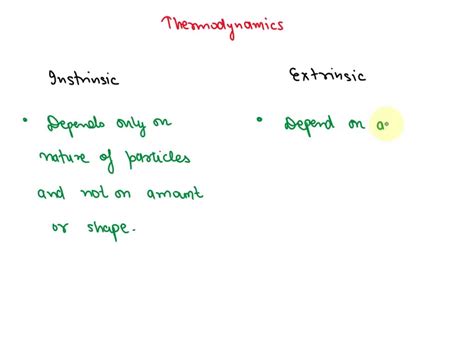 Thermodynamics
Instrinsic
Extrinsic
• Depends only on
nature of particles
and not on amount
or shape.
• Depend on a